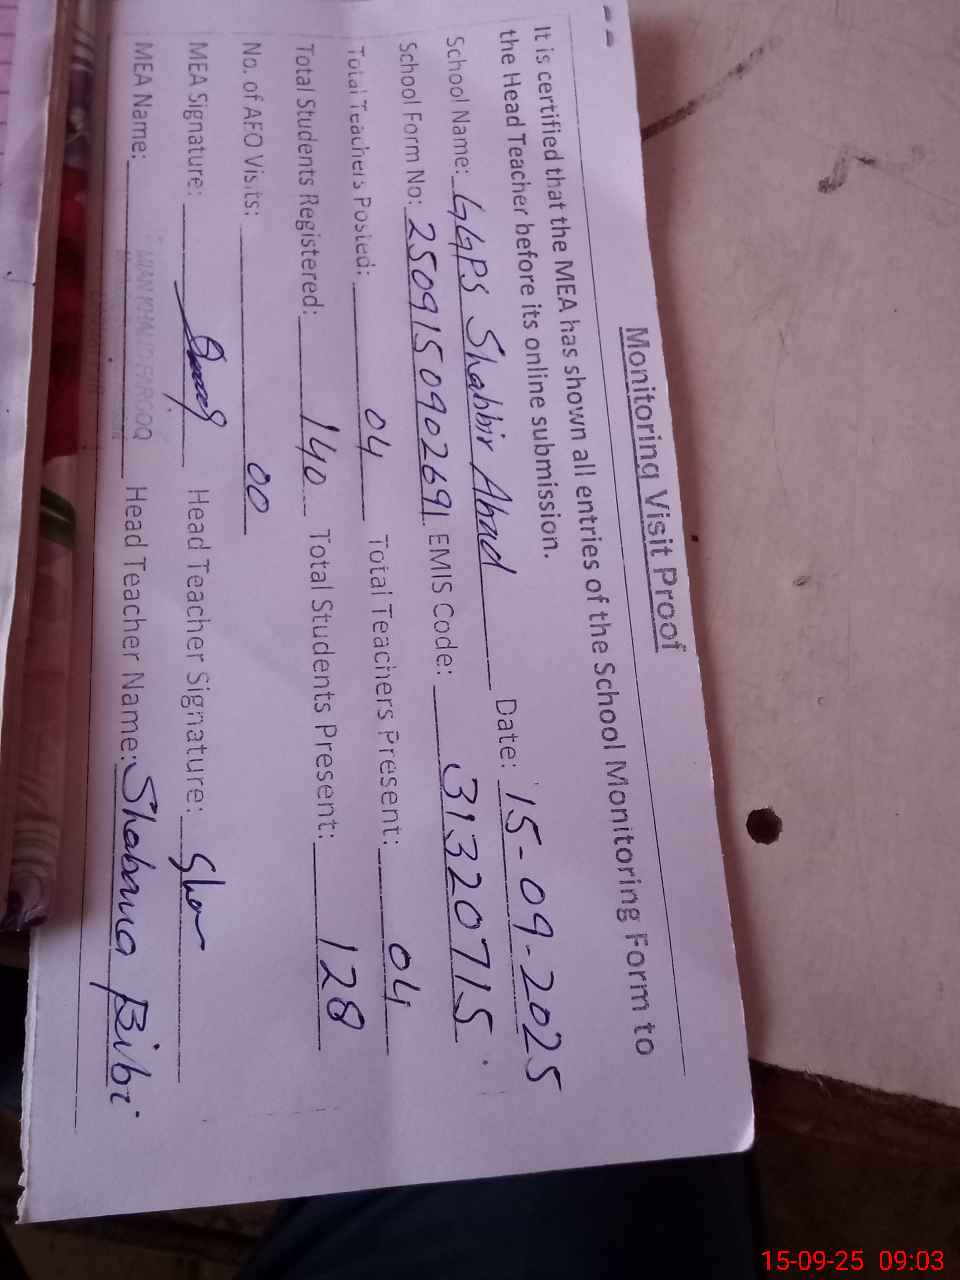 Monitoring Visit Proof
It is certified that the MEA has shown all entries of the School Monitoring Form to
the Head Teacher before its online submission.
School Name: GGPS Shabbir Abad Date: 15-09-2025
School Form No: 2509150902691 EMIS Code: 31320715
Total Teachers Posted: 04 Total Teachers Present: 04
Total Students Registered: 140 Total Students Present: 128
No. of AFO Visits: 00
MEA Signature: Head Teacher Signature:
MEA Name: MIAN KHALID FAROOQ Head Teacher Name: Shabana Bibi
15-09-25 09:03